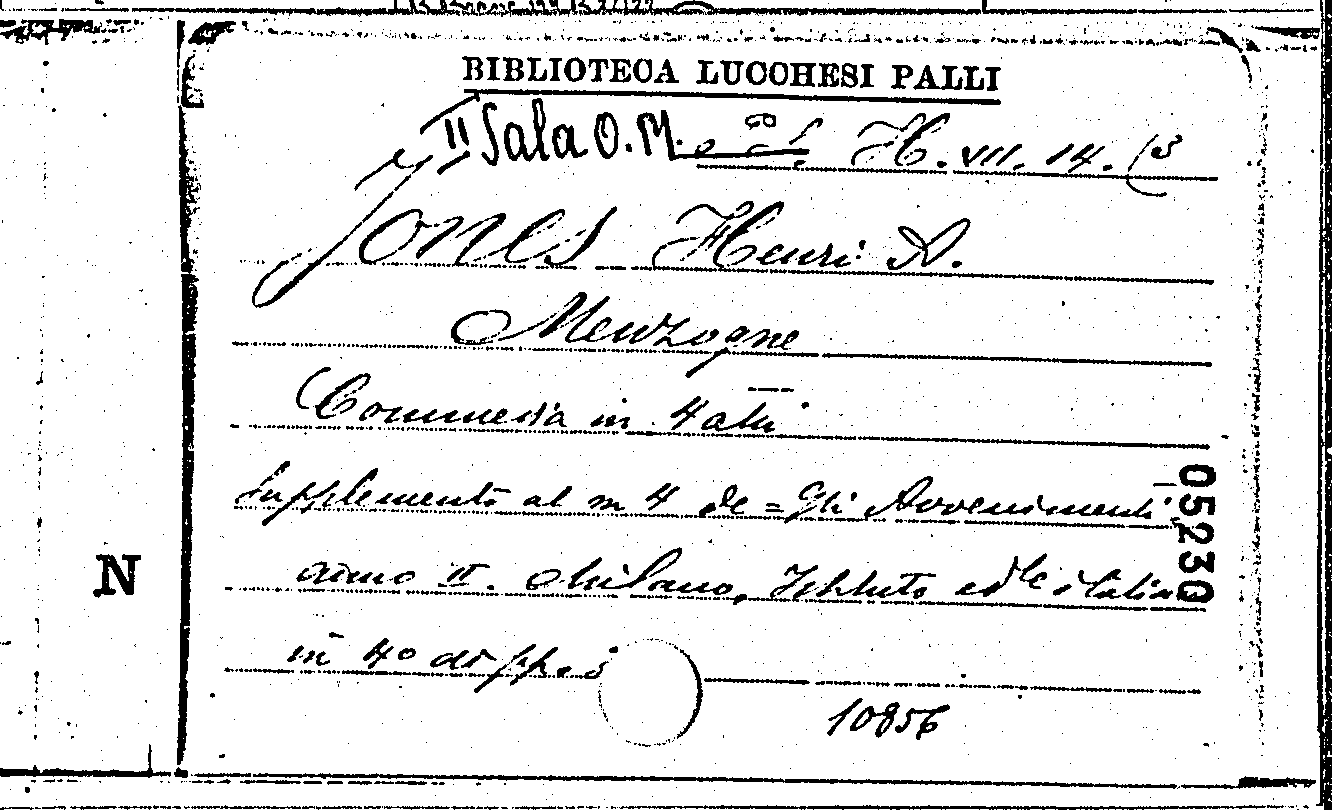 BIBLIOTECA LUCCHESI PALLI
II Sala O. M. H. VII. 14. (3
Jones Henri A.
Menzogne
Commedia in 4 atti
Supplemento al n 4 de = Gli Avvenimenti
anno II. Milano, Istituto ed.le italiano
in 4º di pp.
10856
05230
N